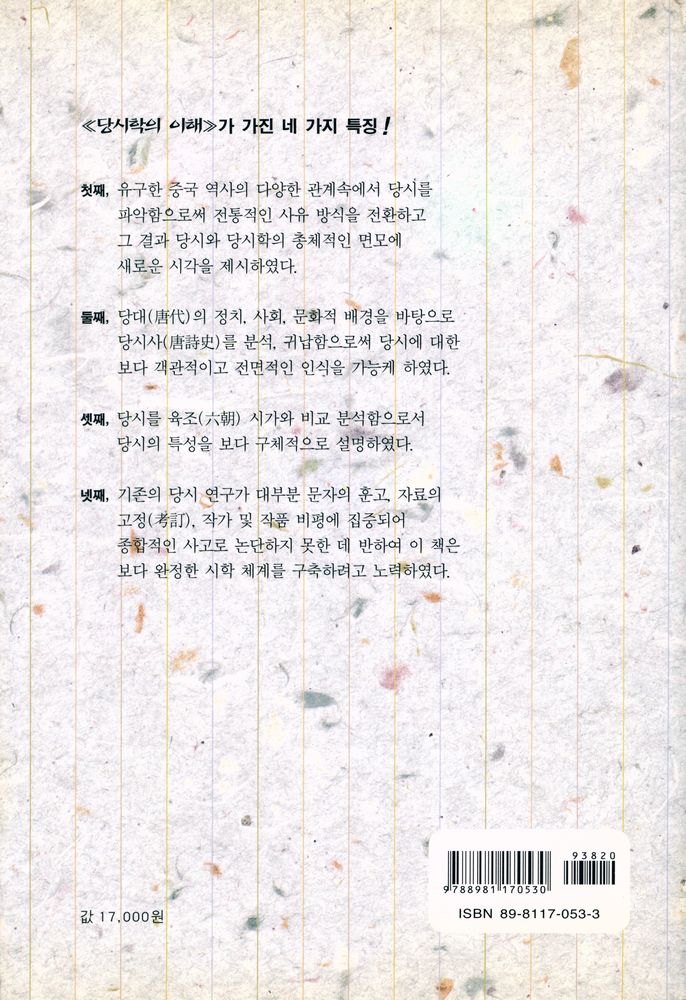 ≪당시학의 이해≫가 가진 네 가지 특징!
첫째, 유구한 중국 역사의 다양한 관계속에서 당시를
파악함으로써 전통적인 사유 방식을 전환하고
그 결과 당시와 당시학의 총체적인 면모에
새로운 시각을 제시하였다.
둘째, 당대(唐代)의 정치, 사회, 문화적 배경을 바탕으로
당시사(唐詩史)를 분석, 귀납함으로써 당시에 대한
보다 객관적이고 전면적인 인식을 가능케 하였다.
셋째, 당시를 육조(六朝) 시가와 비교 분석함으로서
당시의 특성을 보다 구체적으로 설명하였다.
넷째, 기존의 당시 연구가 대부분 문자의 훈고, 자료의
고정(考訂), 작가 및 작품 비평에 집중되어
종합적인 사고로 논단하지 못한 데 반하여 이 책은
보다 완정한 시학 체계를 구축하려고 노력하였다.
93820
9788981170530
ISBN 89-8117-053-3
값 17,000원